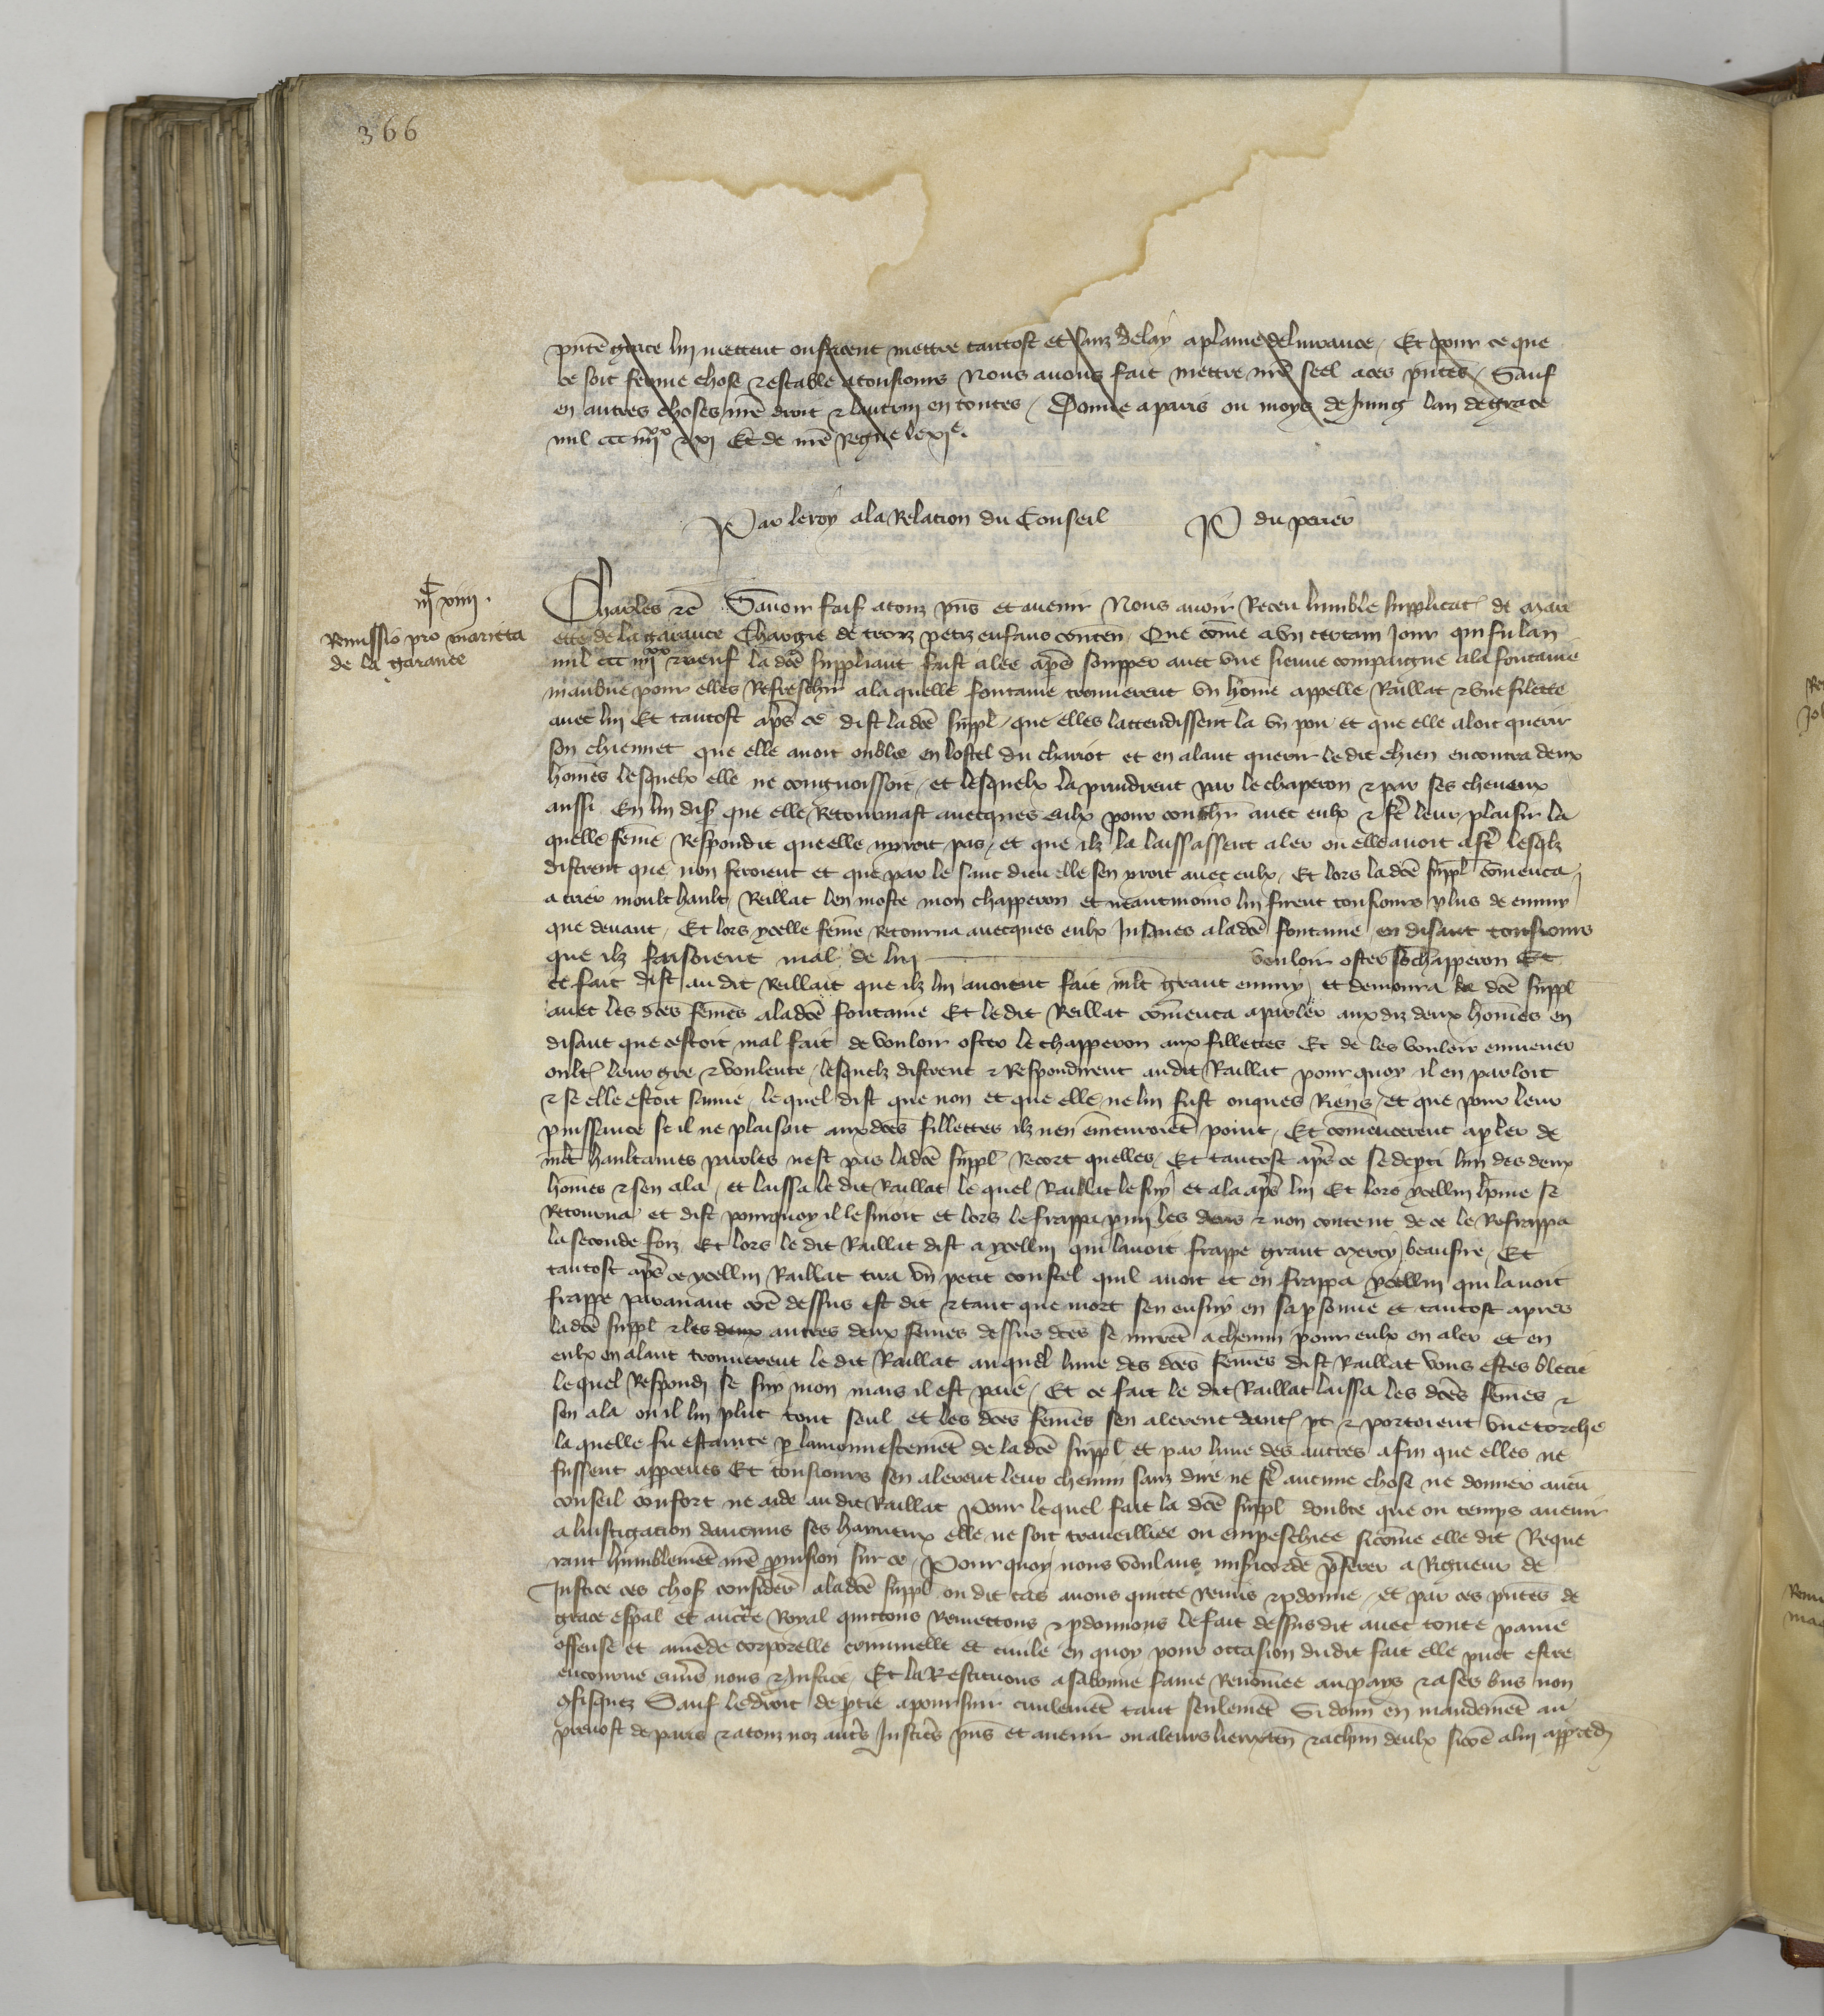 366
pñte grace lui mettent ou facent mettre tantost et sanz delay a plaine delivrance / Et pour ce que
ce soit ferme chose & estable a tousiours Nous avons fait mettre nrē seel a ces pñtes / Sauf
en autres choses nrē droit & lautrui en toutes / Donne a paris ou moys de Juing lan de grace
mil ccc iiiixx & xi Et de nrē Regne le xie.
Par le roy a la Relacion du Conseil P du perier
iiᶜ xiiii.
Remissio pro marieta
de la garance
Charles &c̄ Savoir fais a touz pñs et avenir Nous avoir Receu lumble supplicat̄ de Mari
ette de la garance Chargie de trois petiz enfans conten̄ Que cōme a un certain Jour qui fu lan
mil ccc iiiixx & neuf la dcē suppliant fust alee aprs̄ soupper avec une sienne compaigne a la fontaine
maubue pour elles Refreschir a la quelle fontaine trouverent un hōme appelle Raillat & une filette
avec lui Et tantost aprs̄ ce dist la dcē suppl̄ que elles lattendissent la un pou et que elle aloit querir
son chiennet que elle avoit oublie en lostel du chariot et en alant querir le dit chien encontra deux
hōmes lesquelx elle ne congnoissoit / et lesquelx la prindrent par le chaperon & par ses cheveux
aussi En lui dis̄ que elle Retournast avecques eulx pour couchr̄ avec eulx & fr̄e leur plaisir la
quelle fēme Respondit que elle nyroit pas / et que ilz la laissassent aler ou elle avoit a fr̄e lesqlz
distrent que non feroient et que par le sanc dieu elle sen yroit avec eulx / Et lors la dcē suppl̄ cōmenca
a crier moult hault / Reillat len moste mon chapperon et neantmoins lui firent tousiours plus de ennuy
que devant / Et lors ycelle fēme Retourna avecques eulx Jusques a la dcē fontaine en disant tousiours
que ilz faisoient mal de lui vouloir oster sō chapperon Et
ce fait dist au dit Reillait que ilz lui avoient fait mlt̄ grant ennuy / et demoura la dcē suppl̄
avec les dc̄es fēmes a la dcē fontaine Et le dit Reillat cōmenca a parler aux diz deux hōmes en
disant que cestoit mal fait de vouloir oster le chapperon aux fillettes Et de les vouloir enmener
oult̄ leur gre & voulente / lesquelz distrent & Respondirent au dit Raillat pour quoy il en parloit
& se elle estoit sienne / le quel dist que non et que elle ne lui fust onques Riens / et que pour leur
puissance se il ne plaisoit aux dc̄es fillettes ilz nen ēmenroiēt point / Et cōmencerent a pler de
mlt̄ haultaines paroles nest pas la dcē suppl̄ Recort quelles / Et tantost aprs̄ ce se depti lun des deux
hōmes & sen ala / et laissa le dit Raillat le quel Raillat le suy et ala aprs̄ lui Et lors ycellui hōme se
Retourna et dist pourquoy il le suioit et lors le frappa p̄mi les dens & non content de ce le Refrappa
la seconde foiz / Et lors le dit Raillat dist a ycellui qui lavoit frappe grant mercy beausire / Et
tantost aprs̄ ce ycellui Raillat tira un petit coustel quil avoit et en frappa ycellui qui lavoit
frappe paravant cōe dessus est dit & tant que mort sen ensuy en sa psonne et tantost apres
la dcē suppl̄ & les deux autres deux fēmes dessus dc̄es se mirēt a chemin pour eulx en aler et en
eulx en alant trouverent le dit Raillat au quel lune des dc̄es fēmes dist Raillat vous estes blecie
le quel Respondi se suy mon mais il est paie / Et ce fait le dit Raillat laissa les dc̄es fēmes &
sen ala ou il lui plut tout seul et les dc̄es fēmes sen alerent dautr̄ pt & portoient une torche
la quelle fu estainte p̄ lamonnestemēt de la dcē suppl̄ et par lune des autres afin que elles ne
fussent appceues Et tousiours sen alerent leur chemin sanz dire ne fr̄e aucune chose ne donner aucū
conseil confort ne aide au dit Raillat Pour lequel fait la dcē suppl̄ doubte que ou temps avenir
a linstigacion daucuns ses hayneux elle ne soit traveilliee ou empeschiee sicōme elle dit Reque
rant humblemēt nrē pvision sur ce / Pour quoy nous voulans misicorde pferer a Rigueur de
Justice ces chos̄ considerē a la dcē suppl̄ ou dit cas avons quitte Remis & pdonne / et par ces pñtes de
grace espāl et auctē Royal quittons Remettons & pdonnons le fait dessus dit avec toute paine
offense et amēde corporelle criminelle et civile en quoy pour occasion du dit fait elle puet estre
encourue envs̄ nous & Justice / Et la Restituons a sa bonne fame Renōmee au pays & a ses bñs non
ɔfisquez Sauf le droit de ptie a poursuir civilemēt tant seulemēt Si donn̄ en mandemēt au
prevost de paris & a touz noz autrs̄ Justicrs̄ pñs et avenir ou a leurs lieuxten̄ & a chūn deulx sicōe a lui apptedr̄